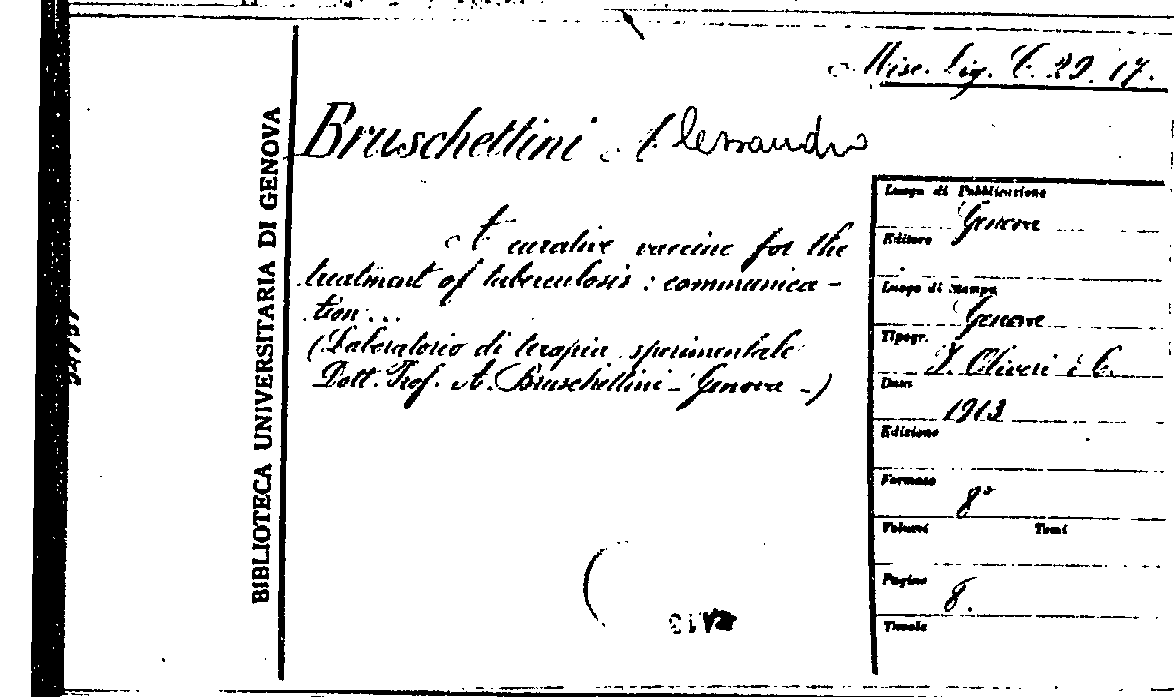 Misc. Lig. C. 29. 17.
BIBLIOTECA UNIVERSITARIA DI GENOVA
Bruschettini Alessandro
A curative vaccine for the
treatment of tuberculosis : communica -
tion ...
(Laboratorio di terapia sperimentale
Dott. Prof. A. Bruschettini - Genova -)
Luogo di Pubblicazione
Genova
Editore
Luogo di Stampa
Genova
Tipogr.
Oliveri & C.
Data
1913
Edizione
Formato
8°
Volumi Tomi
Pagine
8.
Tavole